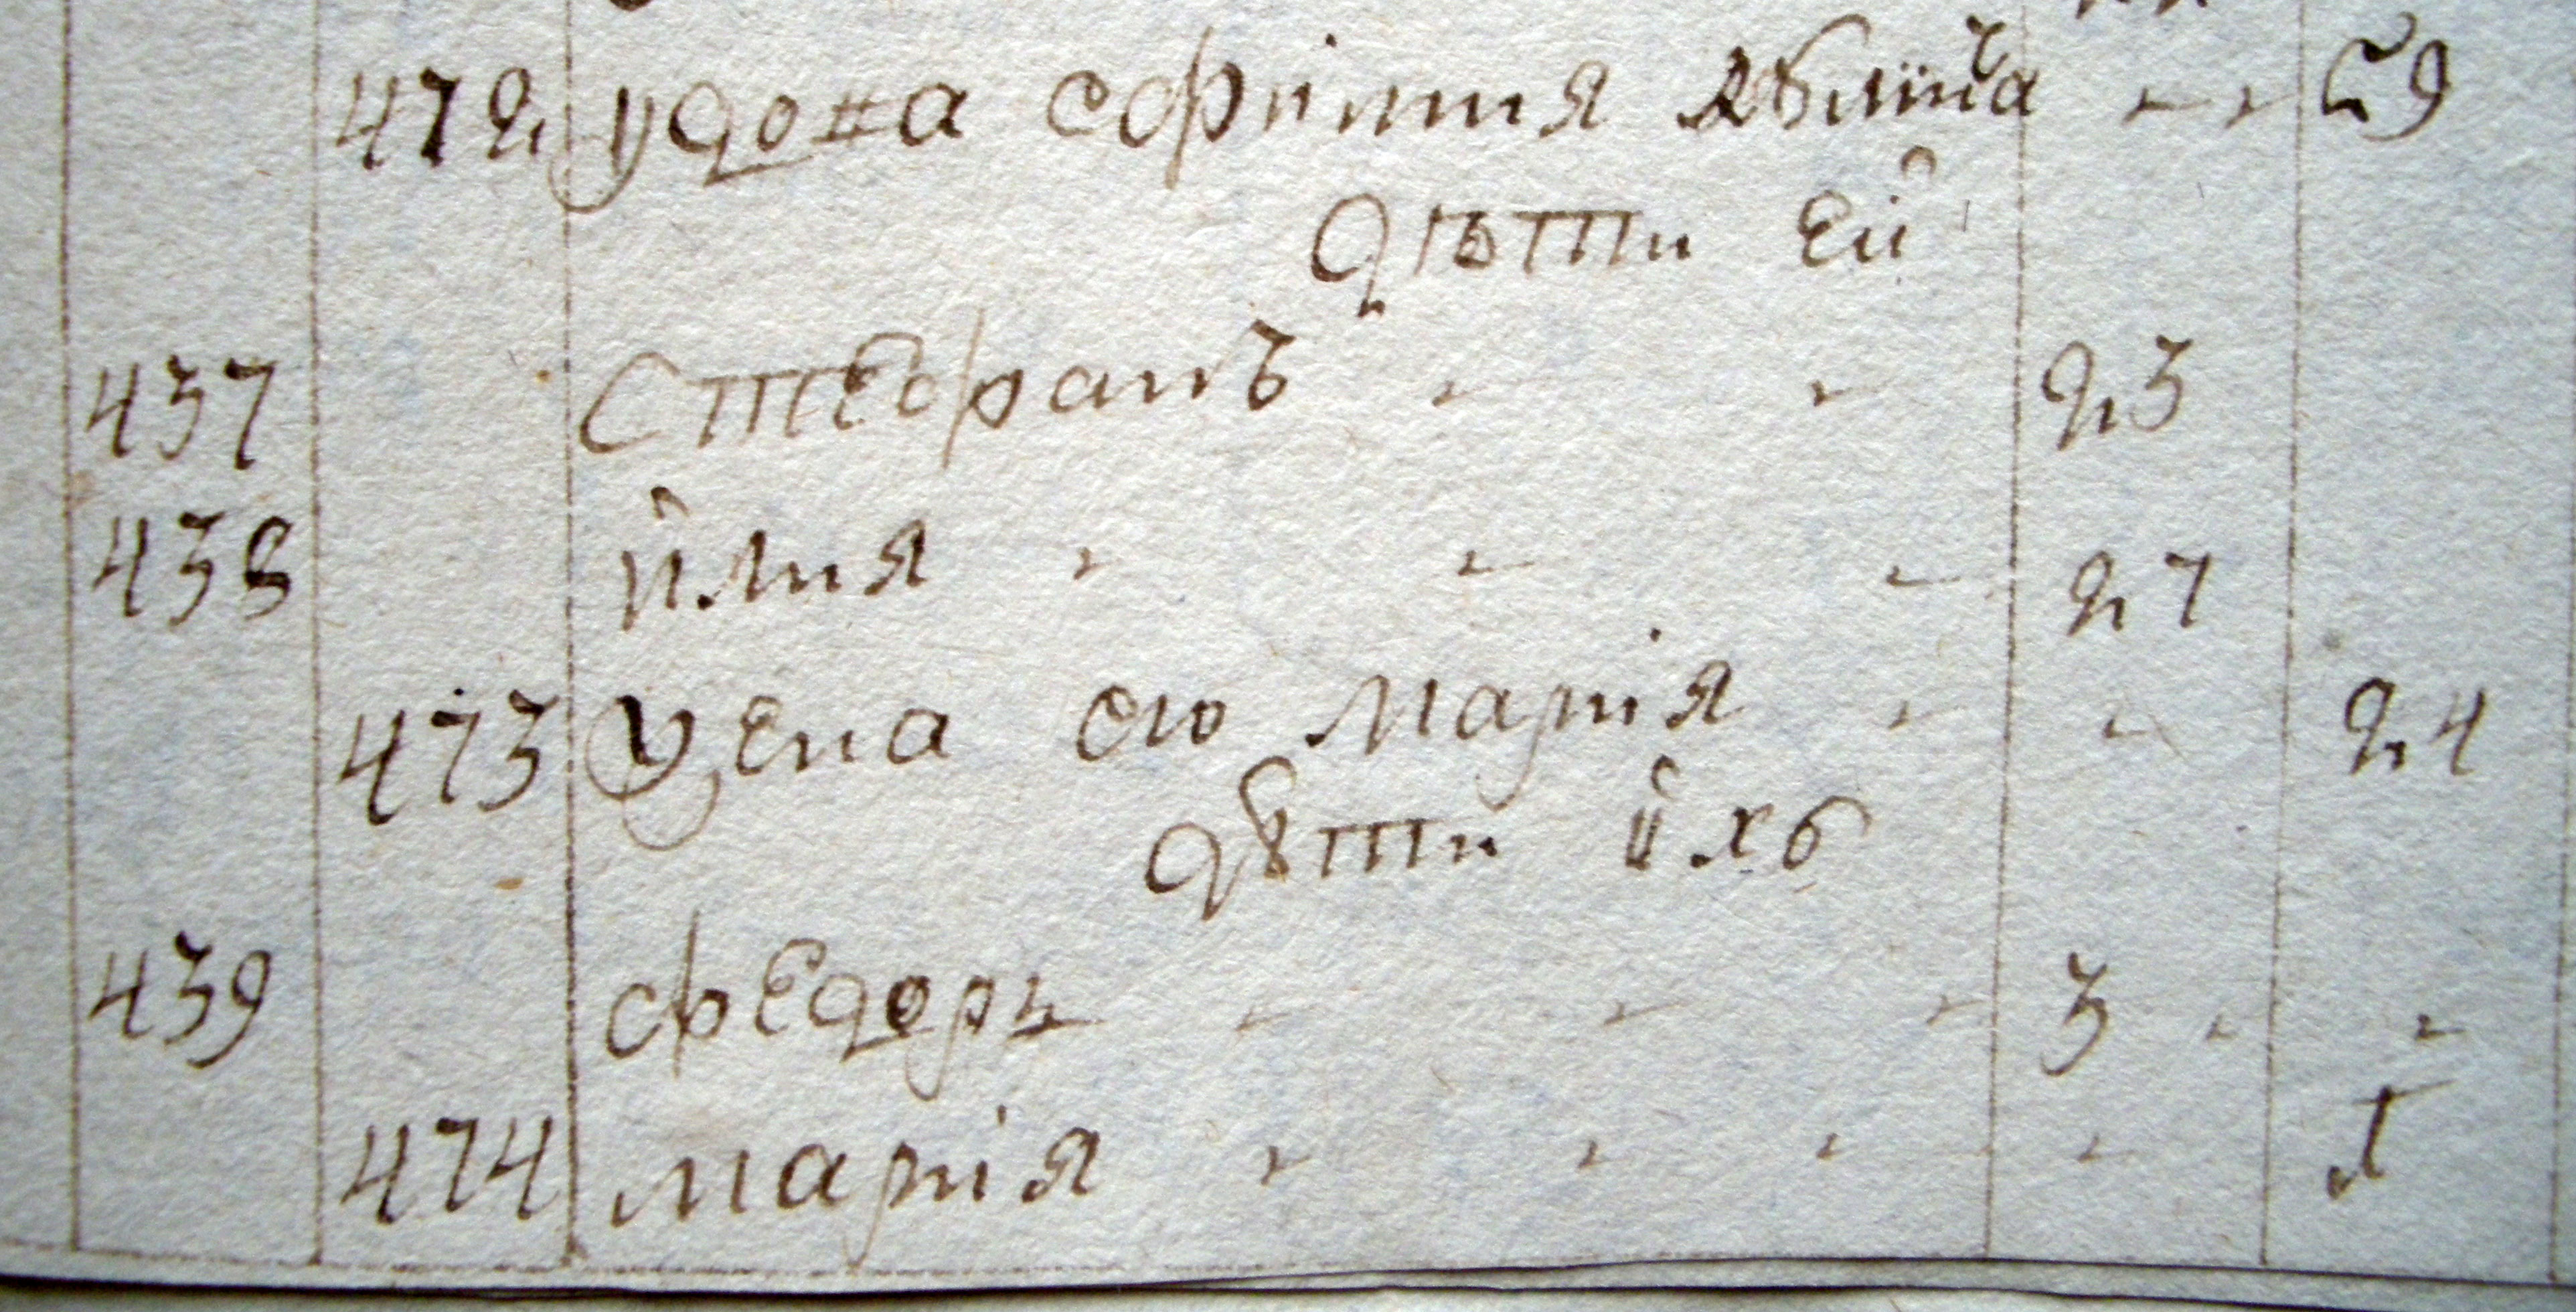 472 удова Софиmия " " 59
дѣти Ей
437 Стефанъ " " 23
438 илия " " " 27
473 Жена его Мария " " 24
дѣти ихъ
439 федоръ " " " 3 " "
474 Мария " " " " 1